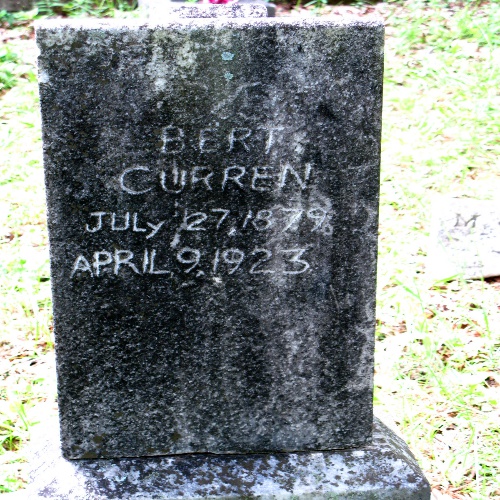 BERT
CURREN
JULY 27, 1879
APRIL 9, 1923
M